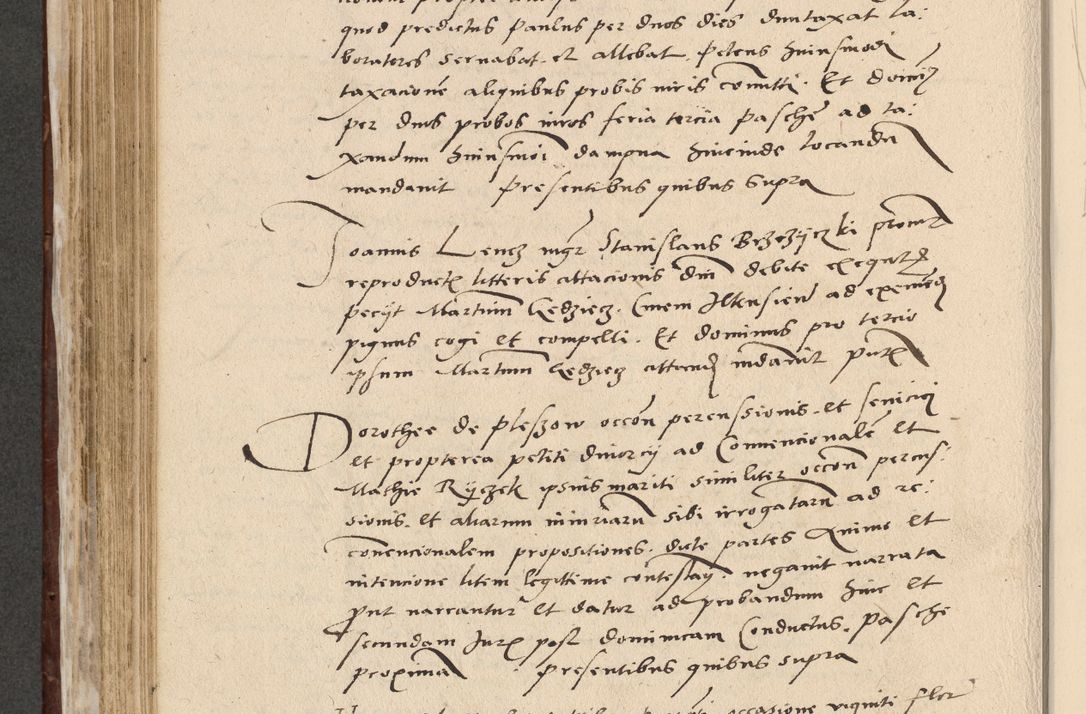 quod predictus Paulus per duos dies duntaxat la:
boratores servabat et allebat. Petens huiusmodi
taxacione aliquibus probis viris comitti. Et domi
per duos probos viros feria tercia Pasche ad ta:
xandum huiusmoi dampna hincinde locanda
mandavit Presentibus quibus supra
Joannis Lencz mgr Stanislaus Brzezyczki procur
reproductis litteris attacionis dni debite exequt
peciit Martinum Gedziecz Cmem Ilkensien ad
pignus cogi et compelli. Et dominus pro tercio
ipsum Martinum Gedziecz attacnd mdavit
Dorothee de Pleszow occon percussionis et sevicie
et propterea petiti divorcij ad Convencionale et
Mathie Ryczek ipsius mariti similiter occon percus:
sionis et aliarum iniuriaru sibi irrogataru ad re:
convencionalem propositiones. dicte partes Animo et
intencione litem legittime contestan. negavit narrata
prout narrantur et datur ad probandum hinc et
secundam Jurx post dominicam Conductus Pasche
proxima Presentibus quibus supra
occasione viginti flor